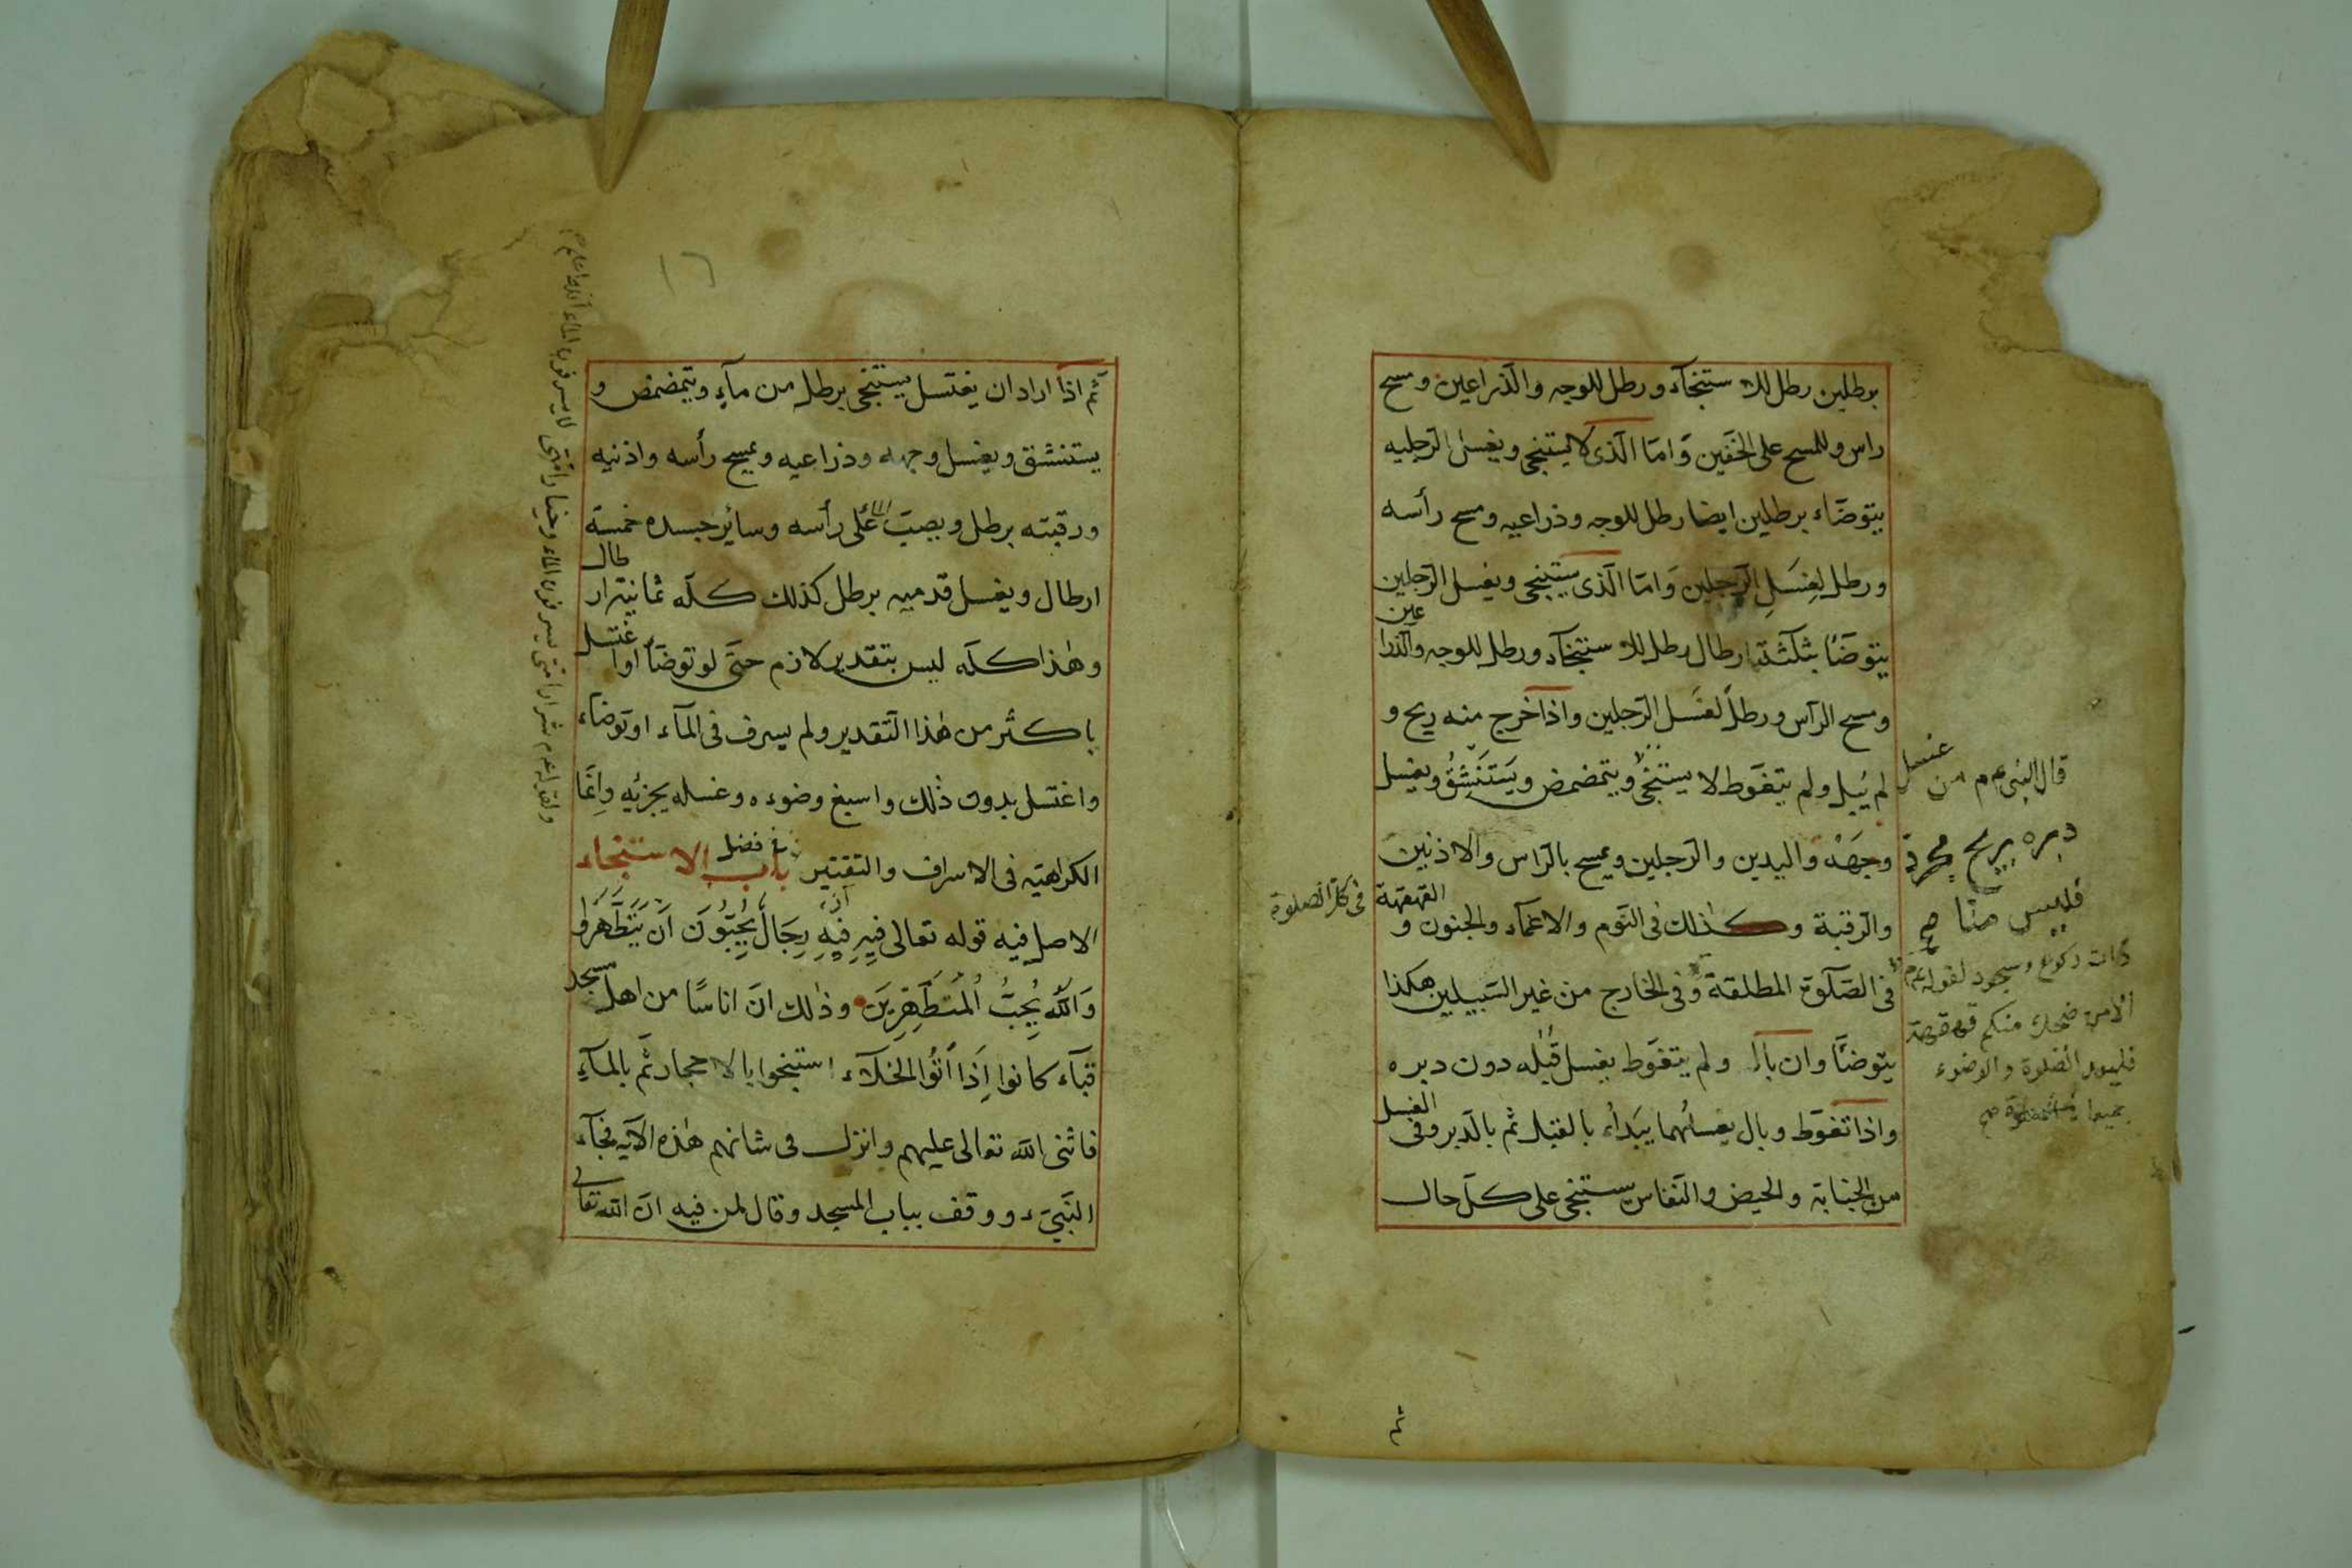 برطلين رطل للاستنجآء ورطل للوجه والذراعين ومسح
راس وللمسح على الخفين وَامّا الّذى لا يستنجى ويغسل الرّجليه
يتوضّاء برطلين ايضا رطل للوجه وذراعيه ومسح رأسه
ورطل لغِسَلِ الرّجلين وَامّا الّذى يستنجى ويغسل الرّجلين
يتوضّأ بثلثة ارطال رطل للاستنجآء ورطل للوجه والذّراعين
ومسح الرآس ورطلٌ لغسل الرّجلين واذا خرج منه ريح و
لم يُبل ولم يتغوّط لا يستنجى ويتمضمض ويَستَنشِقُ ويغسل
وجهَهُ واليدين والرّجلين ويمسح بالرّاس والاذنين
والرّقبة وكذلك فى النّوم والاغمآء والجنون والقهقهة
فى الصّلوة المطلقة وفى الخارج من غير السّبيلين هكذا
يتوضّأ وان بال ولم يتغوّط يغسل قُبُله دون دبره
واذا تغوّط وبال يغسلهما يبَدأ بالقبل ثم بالدّبر وفى الغسل
من الجنابة والحيض والنّفاس يستنجى على كلّ حال
قال النبى عم من غسل
دبره بريح مخرجة
فليس منّا صح
فى كل الصلوة
ذات ركوع وسجود لقوله عم
الا من ضحك منكم قهقهة
فليعد الصلوة والوضوء
جميعا صح
ثم
١٦
ثمّ اذا اراد ان يغتسل يستنجى برطل من مآءٍ ويتمضمض و
يستنشق ويغسل وجهه وذراعيه ويمسح رأسه واذنيه
ورقبته برطل ويصبّ الماء عَلى رأسه وسائر جسده خمسة
ارطال ويغسل قدميه برطل كذلك كلّه ثمانية ارطال
وهذا كلّه ليس بتقدير لازم حتّى لو توضّأ او اغتسل
باكثر من هذا التّقدير ولم يسرف فى المآء او توضّاء
واغتسل بدون ذلك واسبغ وضوءه وغسله يجزئه وانّما
الكراهية فى الاسراف والتقتير باب فى فضل الاستنجاء
الاصل فيه قوله تعالى فيه فيه رِجَالٌ يُحِبّوُنَ اَنْ يَتَطَهَّرُوا
وَاللّٰه يُحِبُّ المُتَطَهِّرِينَ وذٰلك انّ اناسًا من اهل مسجد
قبآء كانوا اِذَا اَتَوُا الخلآء استنجوا بالاحجار ثمّ بالمآءِ
فاثنى اللّٰه تعالى عليهم وانزل فى شانهم هٰذه الآية فجآء
النّبىّ ووقف بباب المسجد وقال لمن فيه انّ اللّٰه تعالى
ولقوله عم شرار امتى يسرفون الماء وخيار امتى لا يسرفون الماء